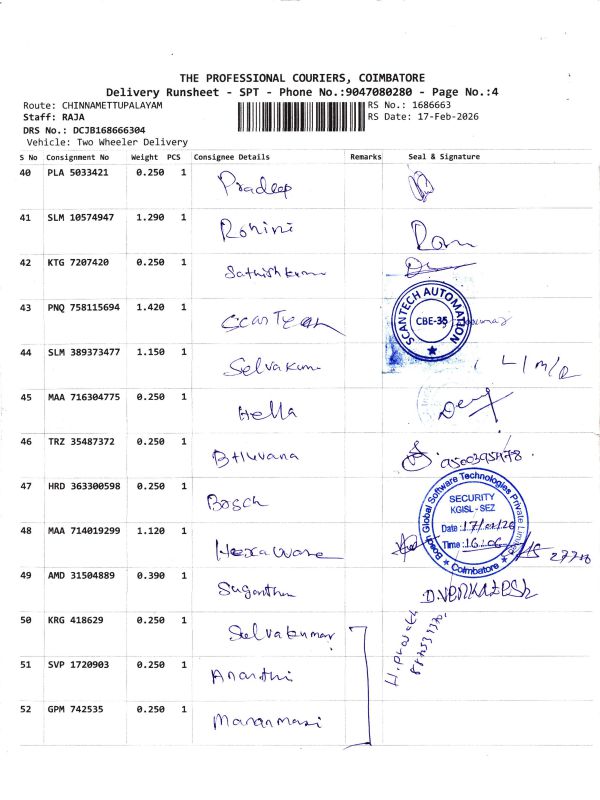 THE PROFESSIONAL COURIERS, COIMBATORE
Delivery Runsheet - SPT - Phone No.:9047080280 - Page No.:4
Route: CHINNAMETTUPALAYAM RS No.: 1686663
Staff: RAJA RS Date: 17-Feb-2026
DRS No.: DCJB168666304
Vehicle: Two Wheeler Delivery
S No Consignment No Weight PCS Consignee Details Remarks Seal & Signature
40 PLA 5033421 0.250 1 Pradeep
41 SLM 10574947 1.290 1 Rohini
42 KTG 7207420 0.250 1 Sathishkumar
43 PNQ 758115694 1.420 1 SCANTECH AUTOMATION CBE-35
44 SLM 389373477 1.150 1 Selvakum
45 MAA 716304775 0.250 1 Hella
46 TRZ 35487372 0.250 1 Bhuvana
47 HRD 363300598 0.250 1 Bosch
Bosch Global Software Technologies Private Limited
SECURITY
KGISL - SEZ
Date: 17/02/26
Time: 16:06
Coimbatore
48 MAA 714019299 1.120 1 Hexaware
49 AMD 31504889 0.390 1 Suganthi D.VENKATESH
50 KRG 418629 0.250 1 Selvakumar
51 SVP 1720903 0.250 1 Ananthi
52 GPM 742535 0.250 1